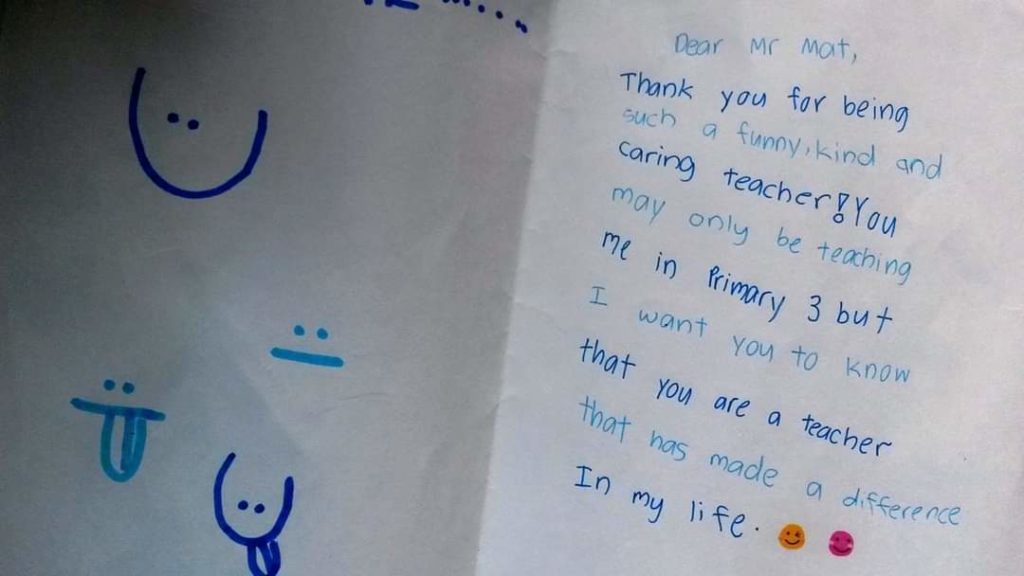 Dear Mr Mat,
Thank you for being
such a funny, kind and
caring teacher! You
may only be teaching
me in Primary 3 but
I want you to know
that you are a teacher
that has made a difference
In my life.